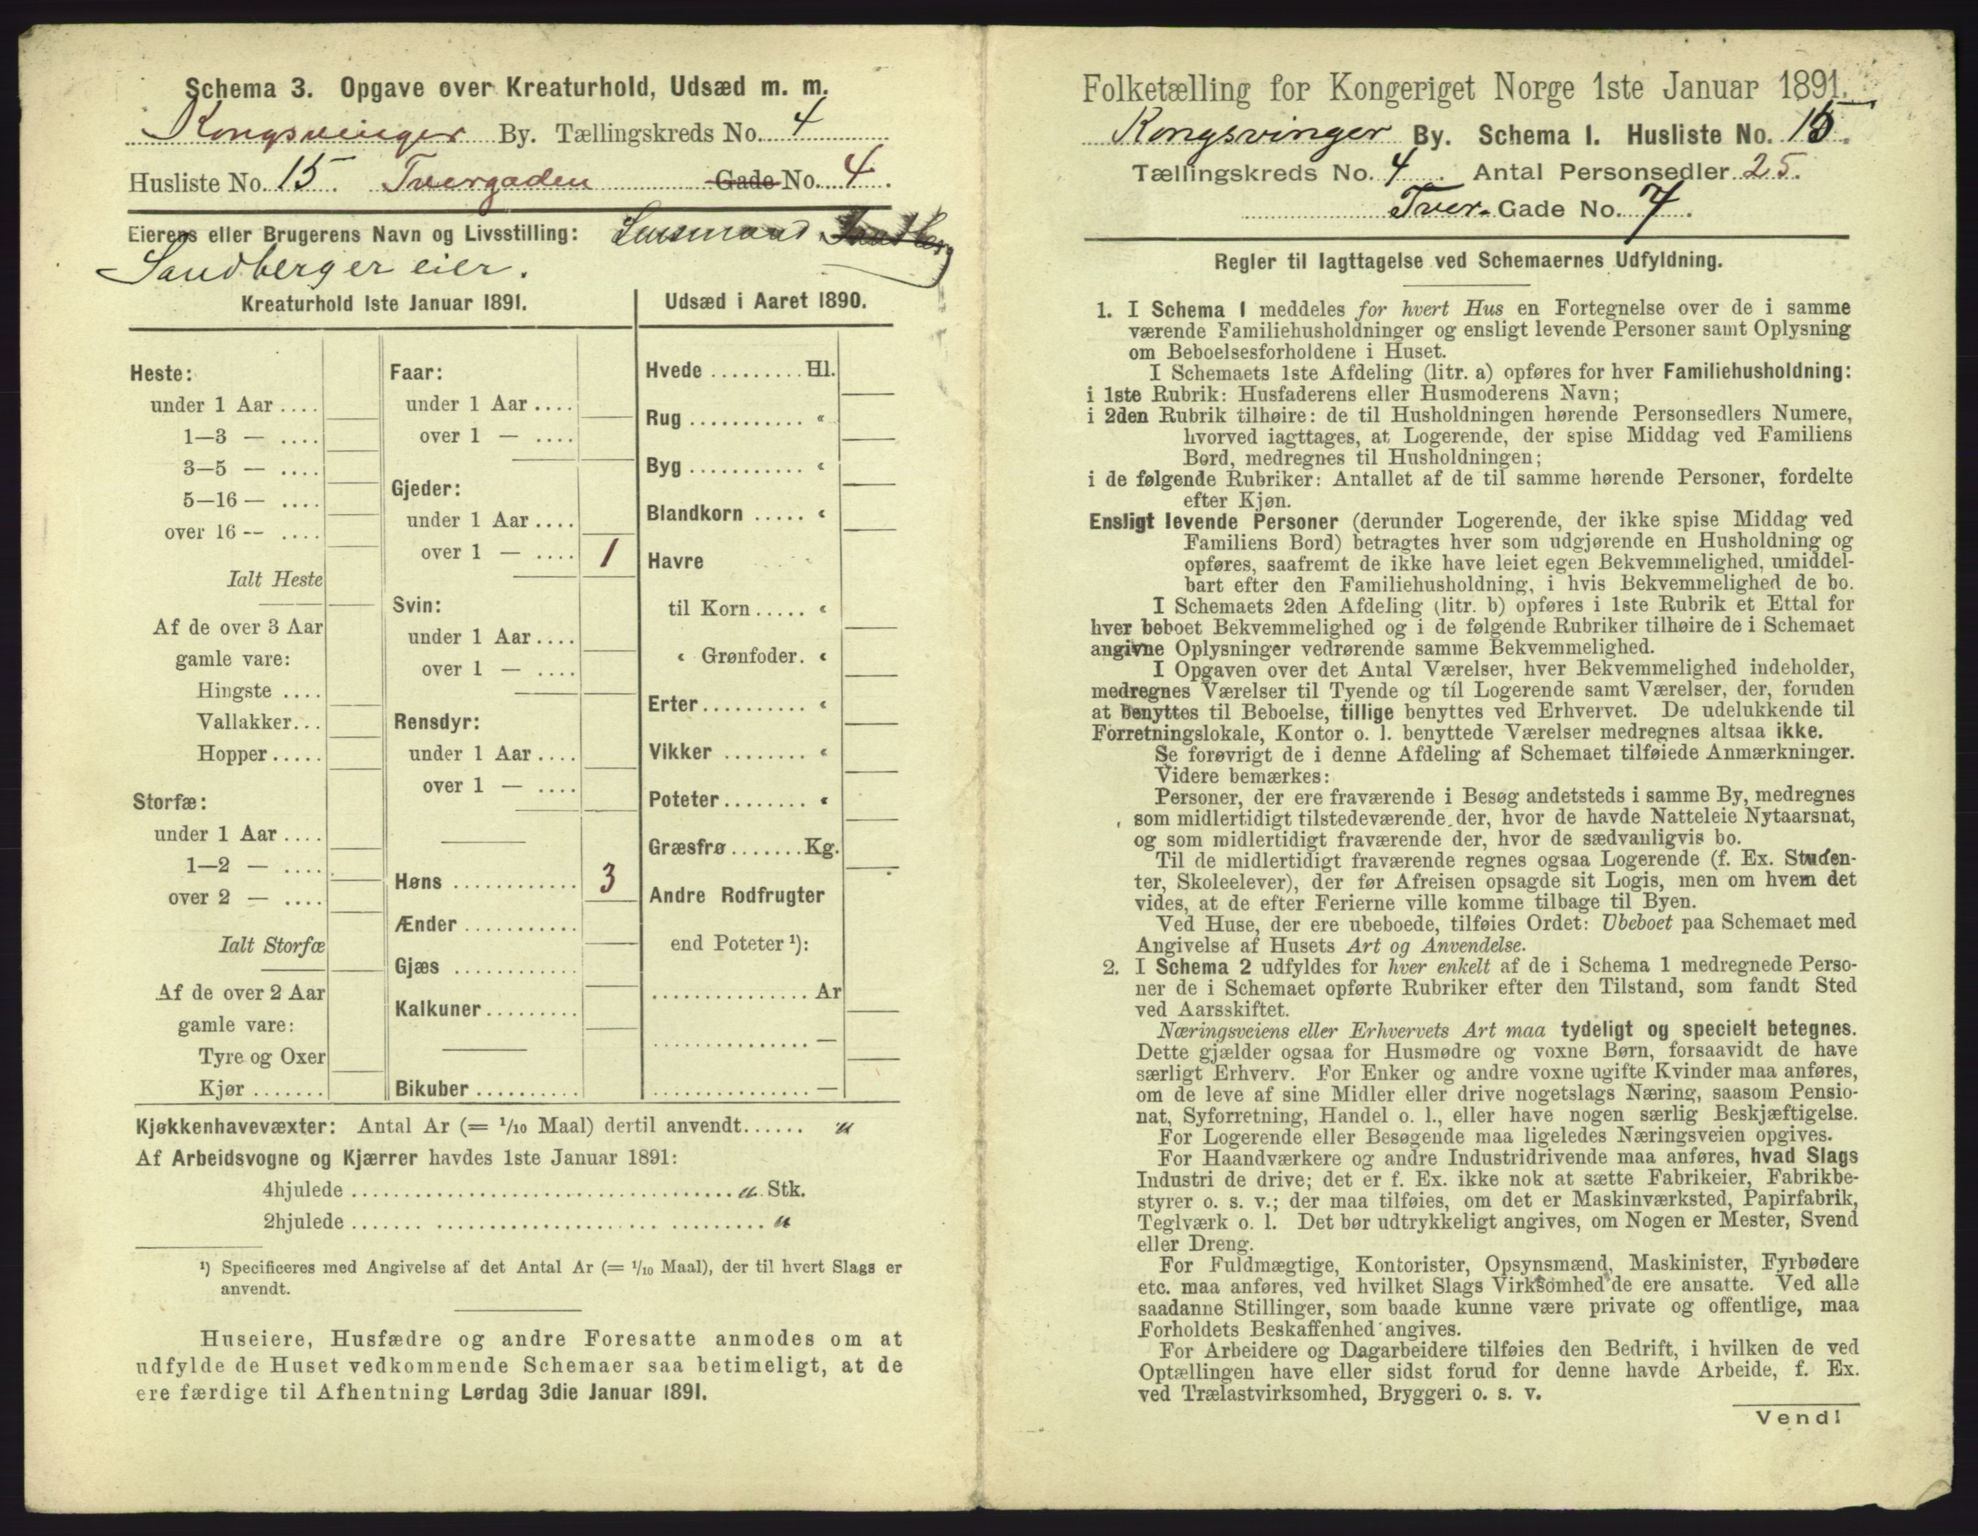 Schema 3. Opgave over Kreaturhold, Udsæd m. m.
Kongsvinger By. Tællingskreds No. 4
Husliste No. 15. Tvergaden Gade No. 4.
Eierens eller Brugerens Navn og Livsstilling: Lensmand Sandberg
Sandberg er eier.
Kreaturhold 1ste Januar 1891.
Heste:
under 1 Aar ....
1—3 — ....
3—5 — ....
5—16 — ....
over 16 — ....
Ialt Heste
Af de over 3 Aar
gamle vare:
Hingste ....
Vallakker...
Hopper.....
Storfæ:
under 1 Aar ....
1—2 — ....
over 2 — ....
Ialt Storfæ
Af de over 2 Aar
gamle vare:
Tyre og Oxer
Kjør .......
Faar:
under 1 Aar ....
over 1 — ....
Gjeder:
under 1 Aar ....
over 1 — .... 1
Svin:
under 1 Aar ....
over 1 — ....
Rensdyr:
under 1 Aar ....
over 1 — ....
Høns ............ 3
Ænder ...........
Gjæs ............
Kalkuner.........
Bikuber ..........
Udsæd i Aaret 1890.
Hvede ......... Hl.
Rug ........... "
Byg ........... "
Blandkorn ..... "
Havre
til Korn ..... "
" Grønfoder. "
Erter.......... "
Vikker ........ "
Poteter........ "
Græsfrø ....... Kg.
Andre Rodfrugter
end Poteter ¹):
............... Ar
............... —
............... —
Kjøkkenhavevæxter: Antal Ar (= 1/10 Maal) dertil anvendt...... "
Af Arbeidsvogne og Kjærrer havdes 1ste Januar 1891:
4hjulede .................................... " Stk.
2hjulede ....... ........ ......... "
¹) Specificeres med Angivelse af det Antal Ar (= 1/10 Maal), der til hvert Slags er
anvendt.
Huseiere, Husfædre og andre Foresatte anmodes om at
udfylde de Huset vedkommende Schemaer saa betimeligt, at de
ere færdige til Afhentning Lørdag 3die Januar 1891.
Folketælling for Kongeriget Norge 1ste Januar 1891.
Kongsvinger By. Schema I. Husliste No. 15.
Tællingskreds No. 4. Antal Personsedler 25.
Tver-Gade No. 7.
Regler til Iagttagelse ved Schemaernes Udfyldning.
1. I Schema 1 meddeles for hvert Hus en Fortegnelse over de i samme
værende Familiehusholdninger og ensligt levende Personer samt Oplysning
om Beboelsesforholdene i Huset.
I Schemaets 1ste Afdeling (litr. a) opføres for hver Familiehusholdning:
i 1ste Rubrik: Husfaderens eller Husmoderens Navn;
i 2den Rubrik tilhøire: de til Husholdningen hørende Personsedlers Numere,
hvorved iagttages, at Logerende, der spise Middag ved Familiens
Bord, medregnes til Husholdningen;
i de følgende Rubriker: Antallet af de til samme hørende Personer, fordelte
efter Kjøn.
Ensligt levende Personer (derunder Logerende, der ikke spise Middag ved
Familiens Bord) betragtes hver som udgjørende en Husholdning og
opføres, saafremt de ikke have leiet egen Bekvemmelighed, umiddel-
bart efter den Familiehusholdning, i hvis Bekvemmelighed de bo.
I Schemaets 2den Afdeling (litr. b) opføres i 1ste Rubrik et Ettal for
hver beboet Bekvemmelighed og i de følgende Rubriker tilhøire de i Schemaet
angivne Oplysninger vedrørende samme Bekvemmelighed.
I Opgaven over det Antal Værelser, hver Bekvemmelighed indeholder,
medregnes Værelser til Tyende og til Logerende samt Værelser, der, foruden
at benyttes til Beboelse, tillige benyttes ved Erhvervet. De udelukkende til
Forretningslokale, Kontor o. l. benyttede Værelser medregnes altsaa ikke.
Se forøvrigt de i denne Afdeling af Schemaet tilføiede Anmærkninger.
Videre bemærkes:
Personer, der ere fraværende i Besøg andetsteds i samme By, medregnes
som midlertidigt tilstedeværende der, hvor de havde Natteleie Nytaarsnat,
og som midlertidigt fraværende der, hvor de sædvanligvis bo.
Til de midlertidigt fraværende regnes ogsaa Logerende (f. Ex. Studen-
ter, Skoleelever), der før Afreisen opsagde sit Logis, men om hvem det
vides, at de efter Ferierne ville komme tilbage til Byen.
Ved Huse, der ere ubeboede, tilføies Ordet: Ubeboet paa Schemaet med
Angivelse af Husets Art og Anvendelse.
2. I Schema 2 udfyldes for hver enkelt af de i Schema 1 medregnede Perso-
ner de i Schemaet opførte Rubriker efter den Tilstand, som fandt Sted
ved Aarsskiftet.
Næringsveiens eller Erhvervets Art maa tydeligt og specielt betegnes.
Dette gjælder ogsaa for Husmødre og voxne Børn, forsaavidt de have
særligt Erhverv. For Enker og andre voxne ugifte Kvinder maa anføres,
om de leve af sine Midler eller drive nogetslags Næring, saasom Pensio-
nat, Syforretning, Handel o. l., eller have nogen særlig Beskjæftigelse.
For Logerende eller Besøgende maa ligeledes Næringsveien opgives.
For Haandværkere og andre Industridrivende maa anføres, hvad Slags
Industri de drive; det er f. Ex. ikke nok at sætte Fabrikeier, Fabrikbe-
styrer o. s. v.; der maa tilføies, om det er Maskinværksted, Papirfabrik,
Teglværk o. l. Det bør udtrykkeligt angives, om Nogen er Mester, Svend
eller Dreng.
For Fuldmægtige, Kontorister, Opsynsmænd, Maskinister, Fyrbødere
etc. maa anføres, ved hvilket Slags Virksomhed de ere ansatte. Ved alle
saadanne Stillinger, som baade kunne være private og offentlige, maa
Forholdets Beskaffenhed angives.
For Arbeidere og Dagarbeidere tilføies den Bedrift, i hvilken de ved
Optællingen have eller sidst forud for denne havde Arbeide, f. Ex.
ved Trælastvirksomhed, Bryggeri o. s. v.
Vend!